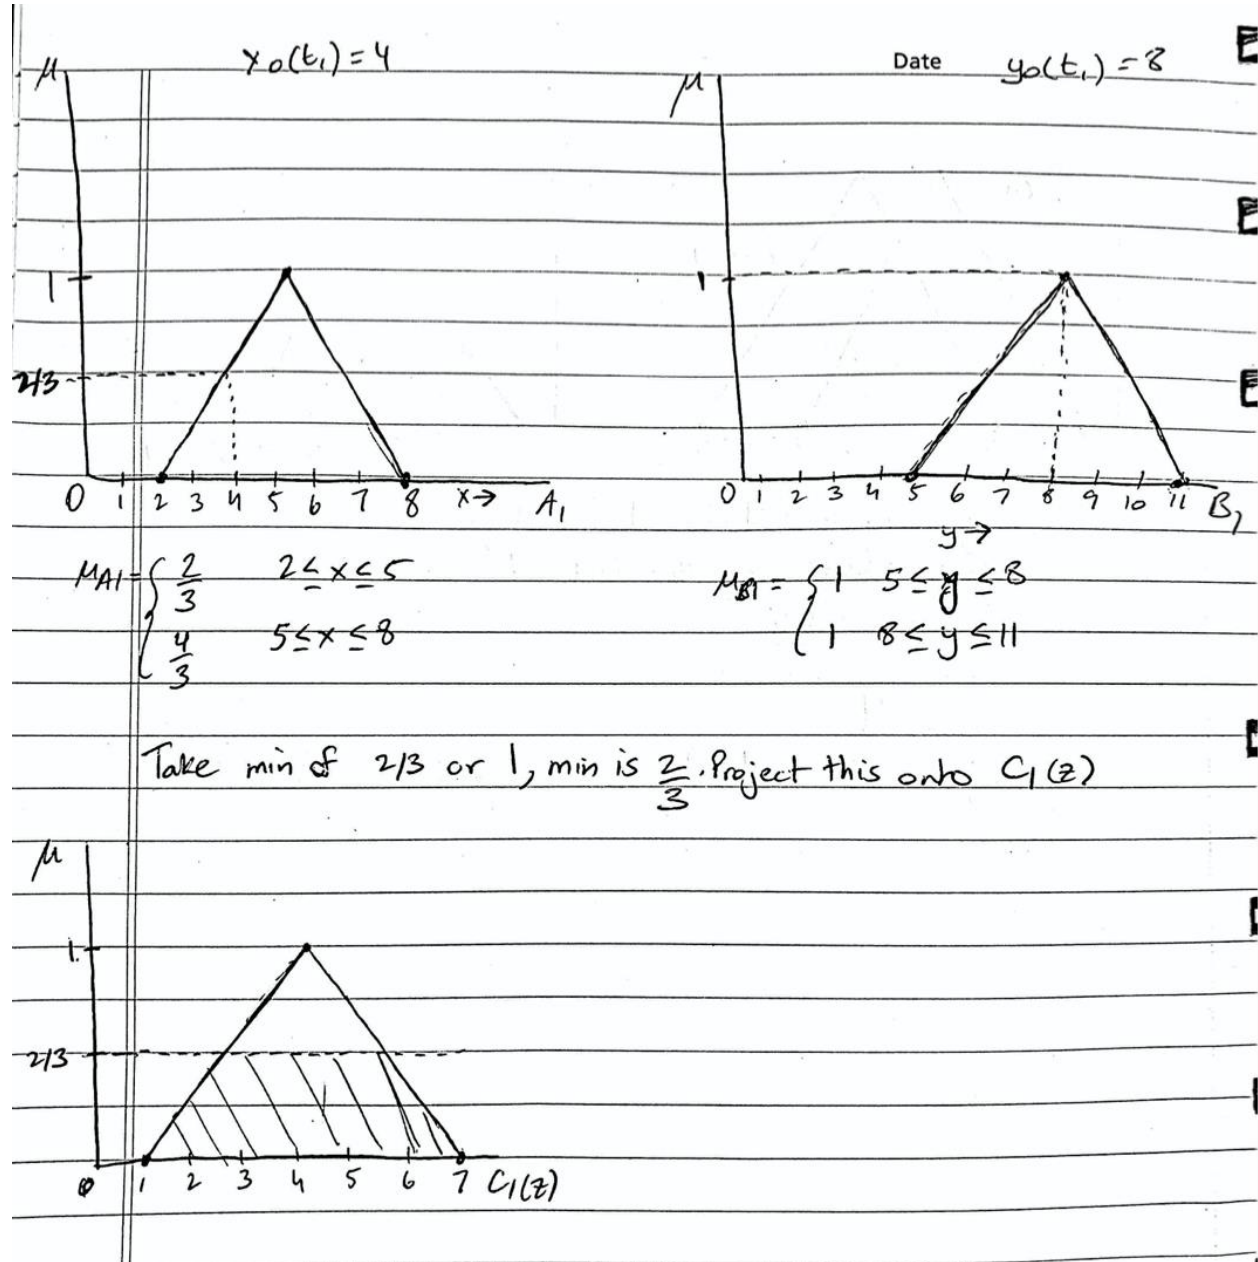 x₀(t₁) = 4
Date y₀(t₁) = 8
μ
μ
1
1
2/3
0 1 2 3 4 5 6 7 8 x→ A₁
0 1 2 3 4 5 6 7 8 9 10 11 B₁
y→
μA1 = { 2/3 2 ≤ x ≤ 5
4/3 5 ≤ x ≤ 8
μB1 = { 1 5 ≤ y ≤ 8
1 8 ≤ y ≤ 11
Take min of 2/3 or 1, min is 2/3. Project this onto C₁(z)
μ
1
2/3
0 1 2 3 4 5 6 7 C₁(z)